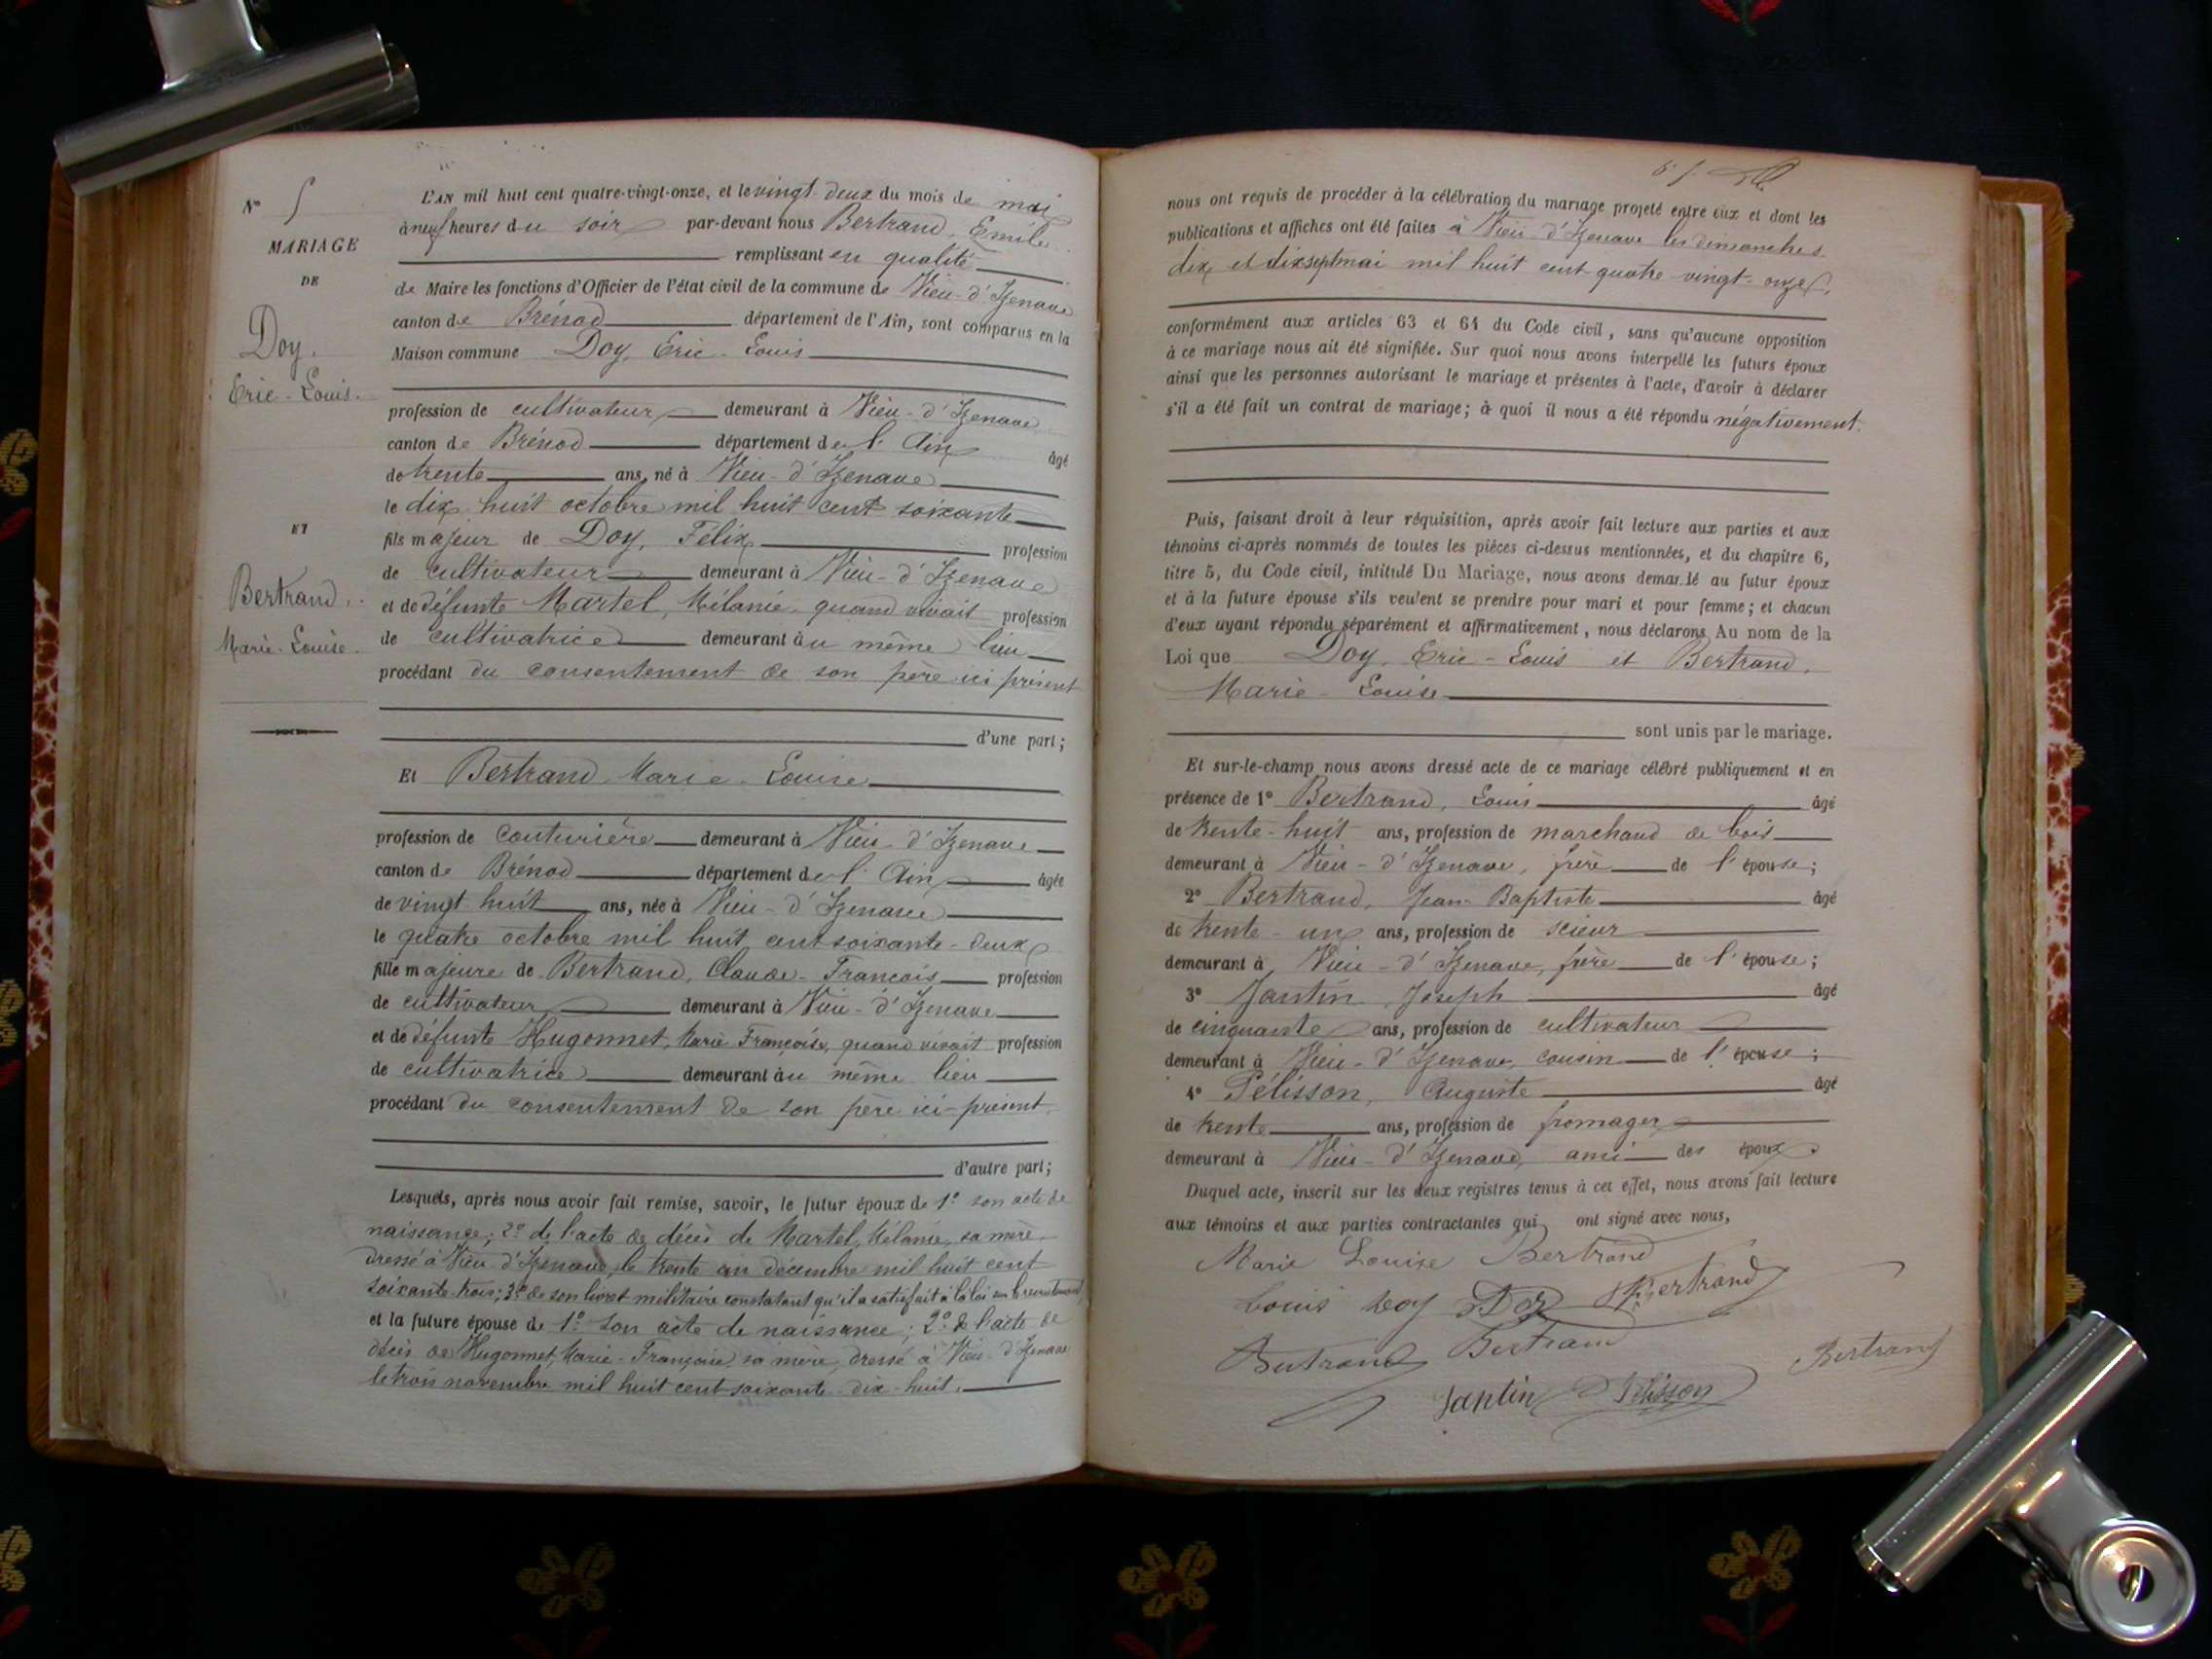 N° 5
MARIAGE
DE
Doy.
Eric-Louis.
ET
Bertrand.
Marie-Louise.
L'AN mil huit cent quatre-vingt-onze, et le vingt-deux du mois de mai
à neuf heures du soir par-devant nous Bertrand, Emile
remplissant en qualité
de Maire les fonctions d'Officier de l'état civil de la commune de Vieu-d'Izenave
canton de Brénod département de l'Ain, sont comparus en la
Maison commune Doy, Eric-Louis
profession de cultivateur demeurant à Vieu-d'Izenave
canton de Brénod département de l'Ain âgé
de trente ans, né à Vieu-d'Izenave
le dix huit octobre mil huit cent soixante
fils majeur de Doy, Félix profession
de cultivateur demeurant à Vieu-d'Izenave
et de défunte Martel, Mélanie quand vivait profession
de cultivatrice demeurant au même lieu
procédant du consentement de son père ici présent
d'une part;
Et Bertrand Marie-Louise
profession de couturière demeurant à Vieu-d'Izenave
canton de Brénod département de l'Ain âgée
de vingt huit ans, née à Vieu-d'Izenave
le quatre octobre mil huit cent soixante-deux
fille majeure de Bertrand, Claude-François profession
de cultivateur demeurant à Vieu-d'Izenave
et de défunte Hugonnet, Marie-Françoise, quand vivait profession
de cultivatrice demeurant au même lieu
procédant du consentement de son père ici-présent
d'autre part;
Lesquels, après nous avoir fait remise, savoir, le futur époux de 1° son acte de
naissance; 2° de l'acte de décès de Martel, Mélanie, sa mère
dressé à Vieu-d'Izenave, le trente un décembre mil huit cent
soixante-trois; 3° de son livret militaire constatant qu'il a satisfait à la loi sur le recrutement
et la future épouse de 1° son acte de naissance; 2° de l'acte de
décès de Hugonnet, Marie-Françoise, sa mère, dressé à Vieu-d'Izenave
le trois novembre mil huit cent soixante-dix-huit.
nous ont requis de procéder à la célébration du mariage projeté entre eux et dont les
publications et affiches ont été faites à Vieu-d'Izenave les dimanches
dix et dix sept mai mil huit cent quatre vingt-onze,
conformément aux articles 63 et 64 du Code civil, sans qu'aucune opposition
à ce mariage nous ait été signifiée. Sur quoi nous avons interpellé les futurs époux
ainsi que les personnes autorisant le mariage et présentes à l'acte, d'avoir à déclarer
s'il a été fait un contrat de mariage; à quoi il nous a été répondu négativement.
Puis, faisant droit à leur réquisition, après avoir fait lecture aux parties et aux
témoins ci-après nommés de toutes les pièces ci-dessus mentionnées, et du chapitre 6,
titre 5, du Code civil, intitulé Du Mariage, nous avons demandé au futur époux
et à la future épouse s'ils veulent se prendre pour mari et pour femme; et chacun
d'eux ayant répondu séparément et affirmativement, nous déclarons Au nom de la
Loi que Doy, Eric-Louis et Bertrand,
Marie-Louise
sont unis par le mariage.
Et sur-le-champ nous avons dressé acte de ce mariage célébré publiquement et en
présence de 1° Bertrand, Louis âgé
de trente-huit ans, profession de marchand de bois
demeurant à Vieu-d'Izenave, frère de l'épouse;
2° Bertrand, Jean-Baptiste âgé
de trente-un ans, profession de scieur
demeurant à Vieu-d'Izenave, frère de l'épouse;
3° Jantin, Joseph âgé
de cinquante ans, profession de cultivateur
demeurant à Vieu-d'Izenave cousin de l'épouse;
4° Pélisson, Auguste âgé
de trente ans, profession de fromager
demeurant à Vieu-d'Izenave, ami des époux
Duquel acte, inscrit sur les deux registres tenus à cet effet, nous avons fait lecture
aux témoins et aux parties contractantes qui ont signé avec nous,
Marie Louise Bertrand
Louis Doy Doy Bertrand
Bertrand Bertrand Bertrand
Jantin Pélisson